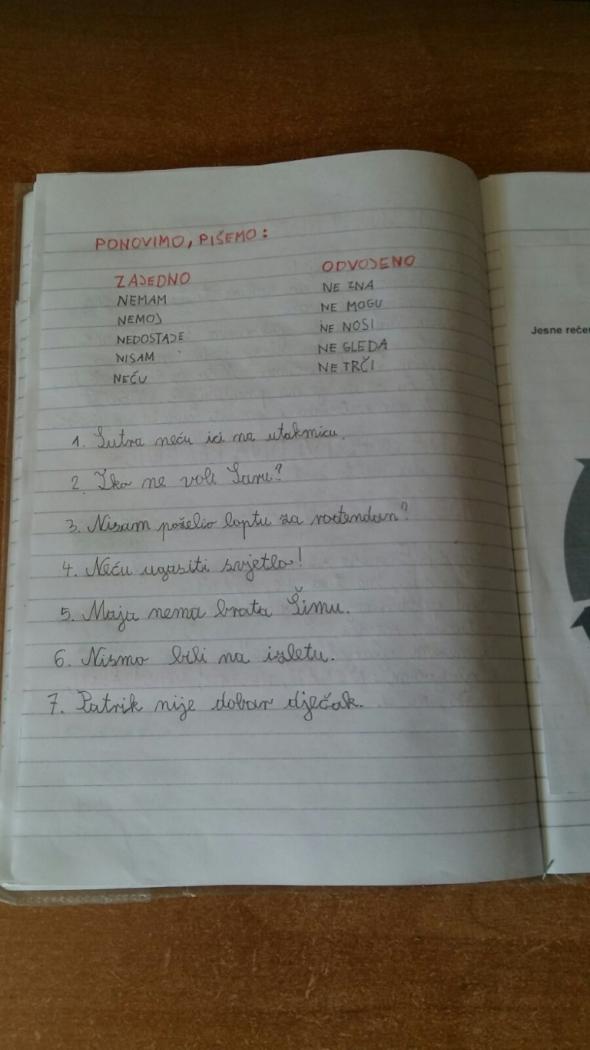 PONOVIMO, PIŠEMO:
ZAJEDNO ODVOJENO
NEMAM NE ZNA
NEMOJ NE MOGU
NEDOSTAJE NE NOSI
NISAM NE GLEDA
NEĆU NE TRČI
1. Sutra neću ići na utakmicu.
2. Tko ne voli Saru?
3. Nisam poželio loptu za rođendan?
4. Neću ugasiti svjetlo!
5. Maja nema brata Šimu.
6. Nismo bili na izletu.
7. Patrik nije dobar dječak.
Jesne reče